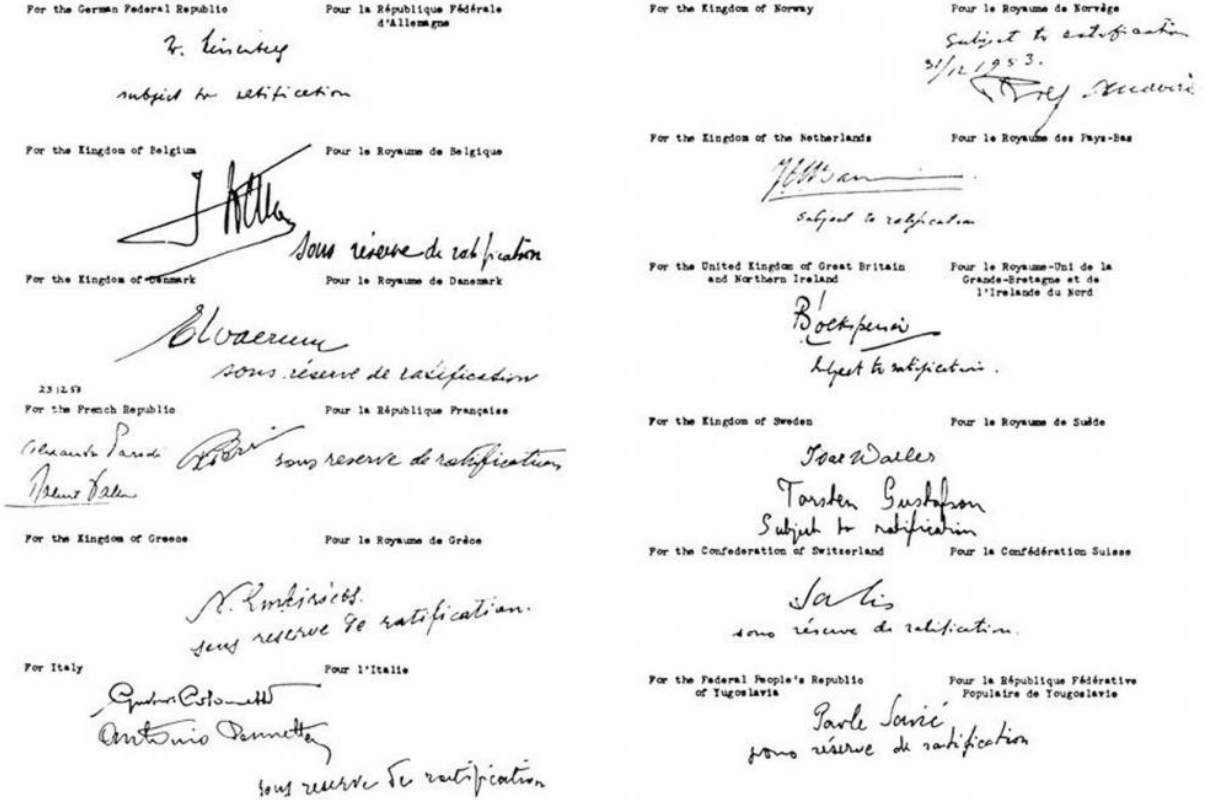 For the German Federal Republic
Pour la République Fédérale
d'Allemagne
W. Heisenberg
subject to ratification
For the Kingdom of Belgium
Pour le Royaume de Belgique
J Willems
sous réserve de ratification
For the Kingdom of Denmark
Pour le Royaume de Danemark
Obvaerum
sous réserve de ratification
23 12 53
For the French Republic
Pour la République Française
Alexandre Parodi
sous reserve de ratification
Robert Valeur
For the Kingdom of Greece
Pour le Royaume de Grèce
N. Embiricos.
sous reserve de ratification.
For Italy
Pour l'Italie
Gustavo Colonnetti
Antonio Pennetta
sous reserve de ratification
For the Kingdom of Norway
Pour le Royaume de Norvège
Subject to ratification
31/12 1953.
Rolf Andvord
For the Kingdom of the Netherlands
Pour le Royaume des Pays-Bas
subject to ratification
For the United Kingdom of Great Britain
and Northern Ireland
Pour le Royaume-Uni de la
Grande-Bretagne et de
l'Irelande du Nord
Subject to ratification.
For the Kingdom of Sweden
Pour le Royaume de Suède
Ivar Waller
Torsten Gustafson
Subject to ratification
For the Confederation of Switzerland
Pour la Confédération Suisse
Salis
sous réserve de ratification.
For the Federal People's Republic
of Yugoslavia
Pour la République Fédérative
Populaire de Yougoslavie
Pavle Savić
sous réserve de ratification